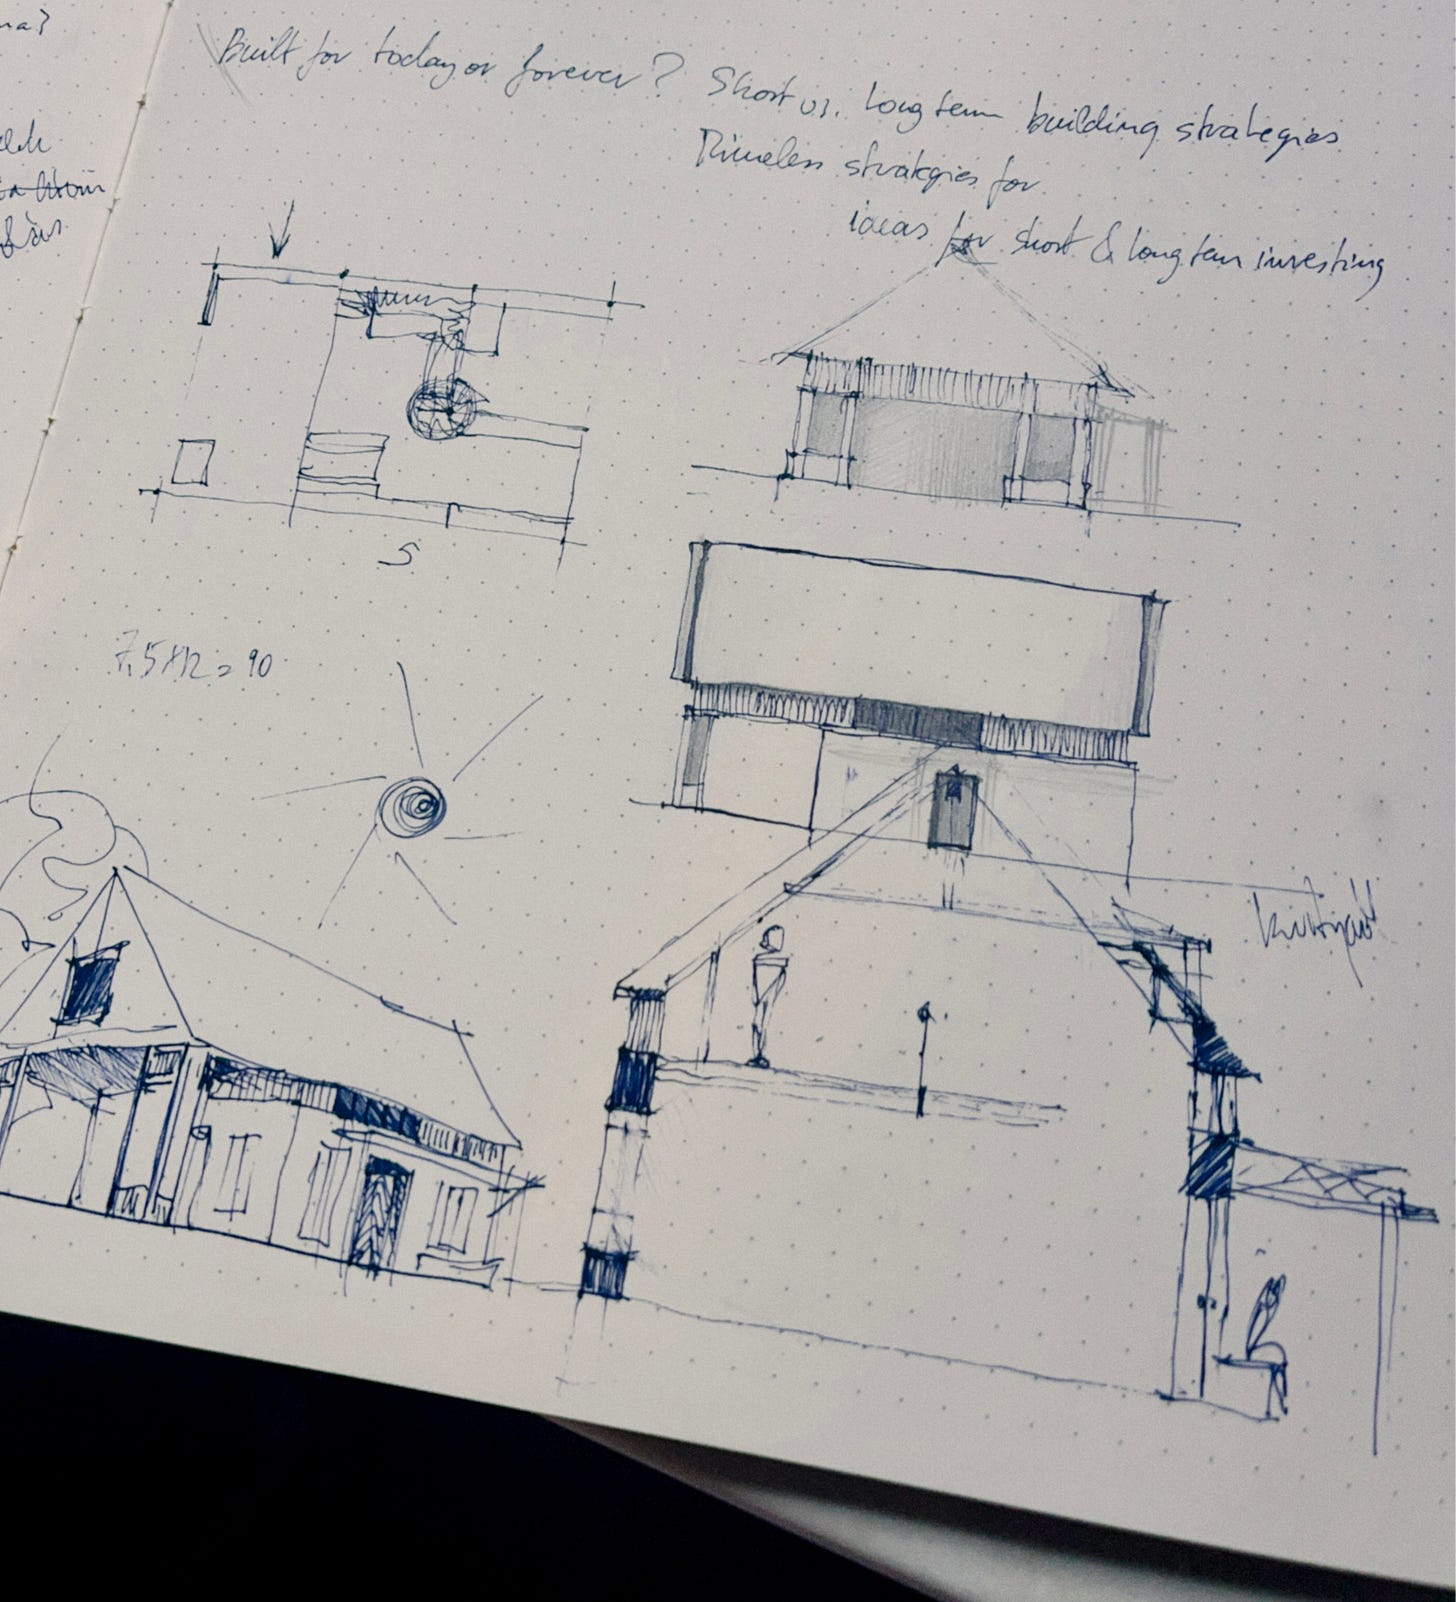 Built for today or forever? Short vs. long term building strategies
Timeless strategies for
ideas for short & long term investing
S
7,5x12=90